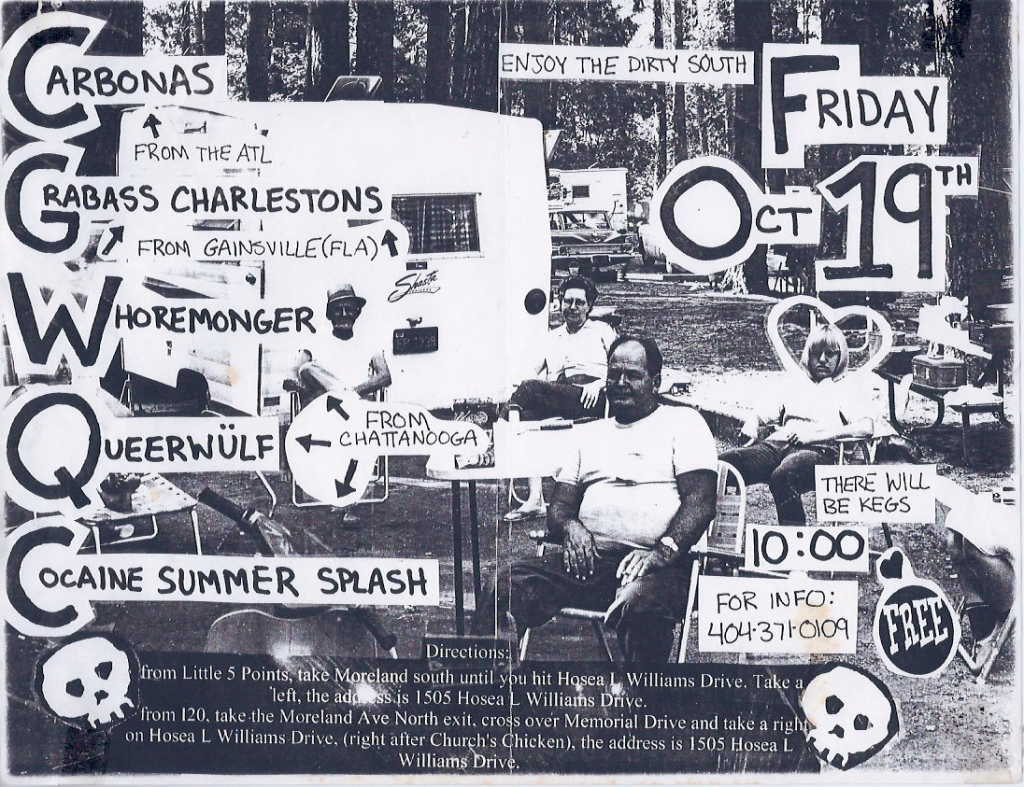 CARBONAS
FROM THE ATL
GRABASS CHARLESTONS
FROM GAINSVILLE (FLA)
WHOREMONGER
QUEERWÜLF
FROM
CHATTANOOGA
COCAINE SUMMER SPLASH
ENJOY THE DIRTY SOUTH
FRIDAY
OCT 19TH
Shasta
THERE WILL
BE KEGS
10:00
FOR INFO:
404·371·0109
FREE
Directions:
from Little 5 Points, take Moreland south until you hit Hosea L Williams Drive. Take a
left, the address is 1505 Hosea L Williams Drive.
from I20, take the Moreland Ave North exit, cross over Memorial Drive and take a right
on Hosea L Williams Drive, (right after Church's Chicken), the address is 1505 Hosea L
Williams Drive.